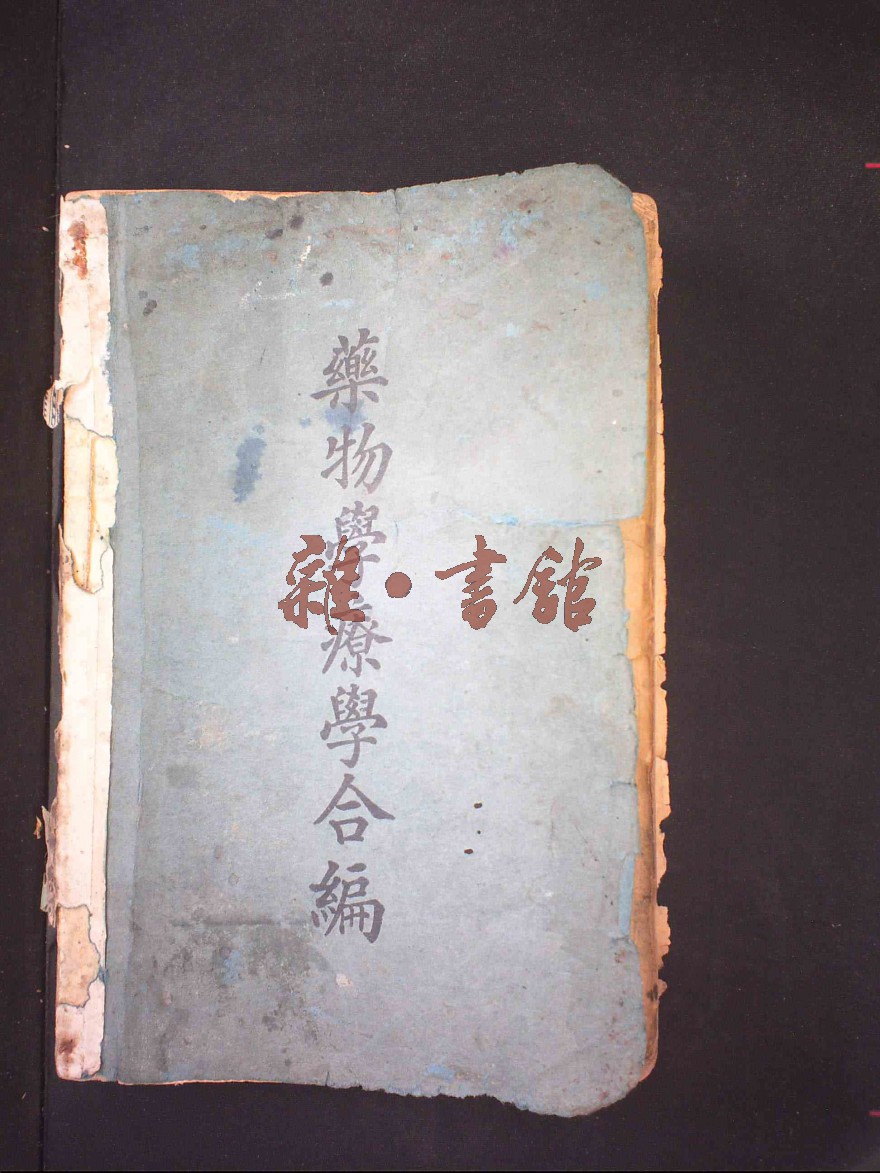 藥物學療學合編
雜·書館